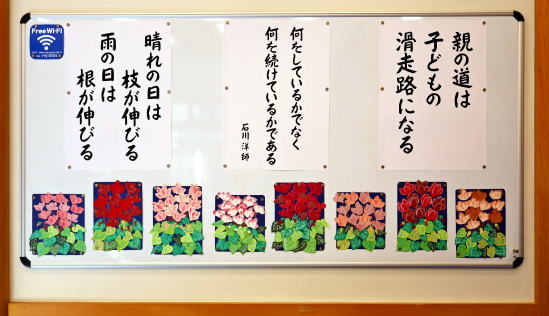 Free Wi-Fi
親の道は
子どもの
滑走路になる
何をしているかでなく
何を続けているかである
石川 洋師
晴れの日は
枝が伸びる
雨の日は
根が伸びる